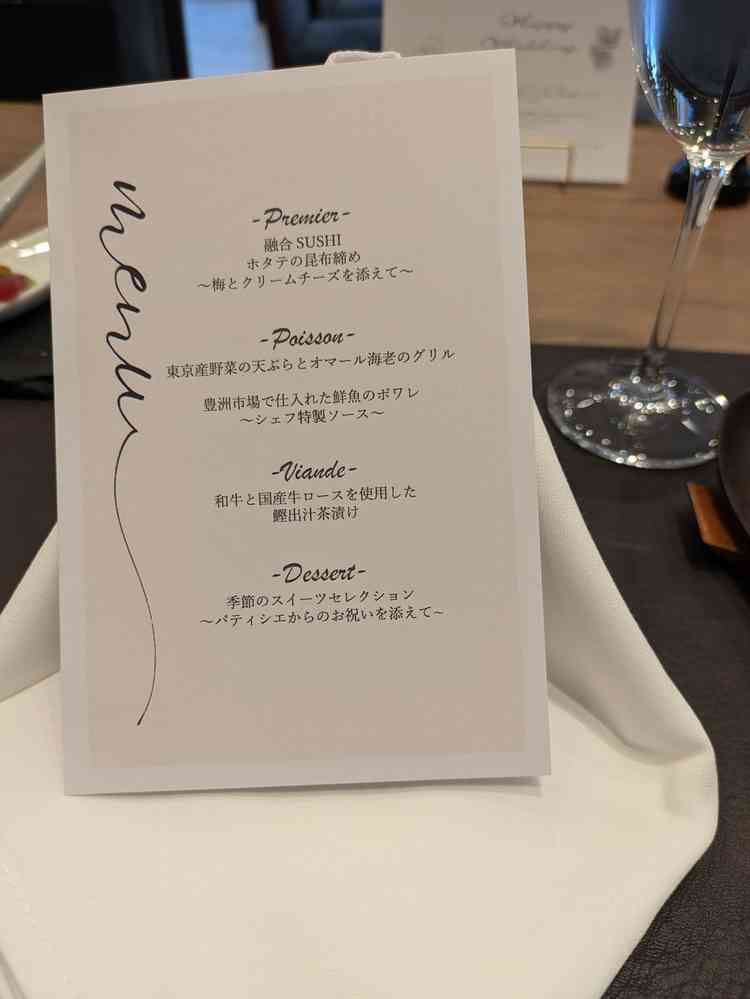 menu
-Premier-
融合 SUSHI
ホタテの昆布締め
～梅とクリームチーズを添えて～
-Poisson-
東京産野菜の天ぷらとオマール海老のグリル
豊洲市場で仕入れた鮮魚のポワレ
～シェフ特製ソース～
-Viande-
和牛と国産牛ロースを使用した
鰹出汁茶漬け
-Dessert-
季節のスイーツセレクション
～パティシエからのお祝いを添えて～
Happy
Wedding